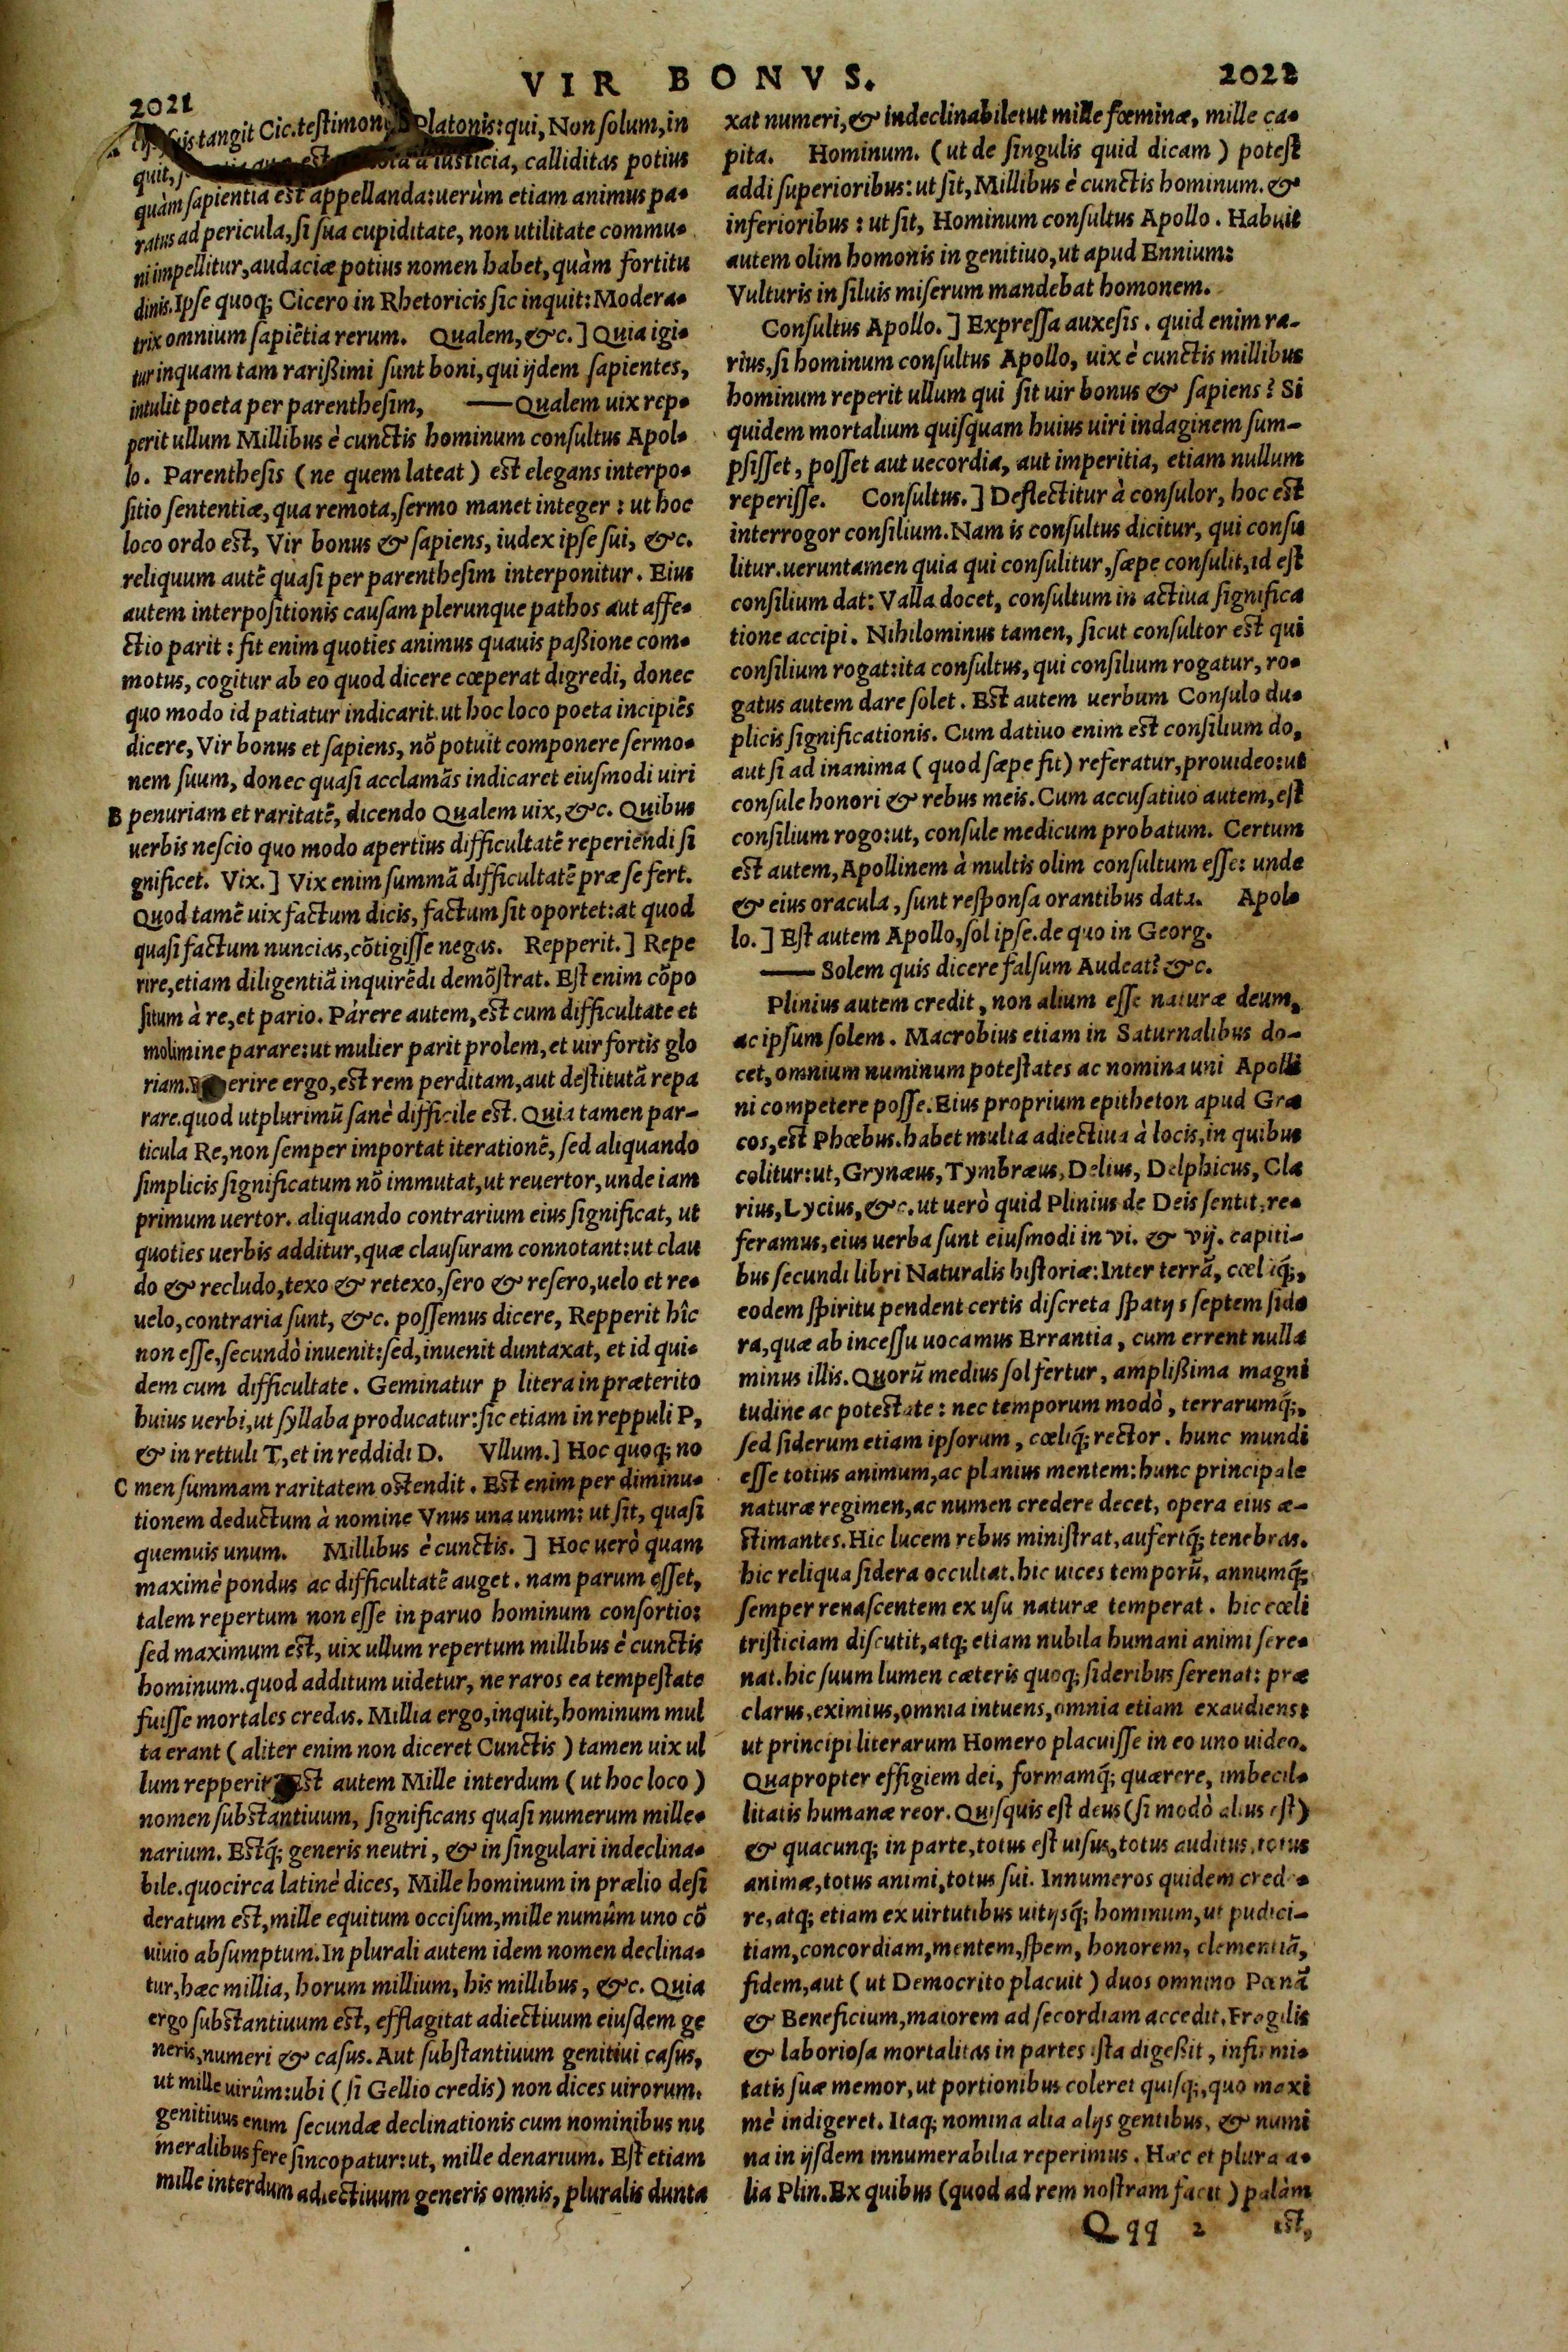 VIR BONVS.
2021
2022
tangit Cic. testimon Platonis: qui, Non solum, in
quit, iusticia, calliditas potius
quàm sapientia est appellanda: uerùm etiam animus pa-
ratus ad pericula, si sua cupiditate, non utilitate commu-
ni impellitur, audaciæ potius nomen habet, quàm fortitu
dinis. Ipse quoq; Cicero in Rhetoricis sic inquit: Modera-
trix omnium sapiētia rerum. Qualem, &c.] Quia igi-
tur inquam tam rarißimi sunt boni, qui ijdem sapientes,
intulit poeta per parenthesim, —Qualem uix rep-
perit ullum Millibus è cunctis hominum consultus Apol-
lo. Parenthesis (ne quem lateat) est elegans interpo-
sitio sententiæ, qua remota, sermo manet integer: ut hoc
loco ordo est, Vir bonus & sapiens, iudex ipse sui, &c.
reliquum autē quasi per parenthesim interponitur. Eius
autem interpositionis causam plerunque pathos aut affe-
ctio parit: fit enim quoties animus quauis paßione com-
motus, cogitur ab eo quod dicere cœperat digredi, donec
quo modo id patiatur indicarit. ut hoc loco poeta incipiēs
dicere, Vir bonus et sapiens, nō potuit componere sermo-
nem suum, donec quasi acclamās indicaret eiusmodi uiri
B penuriam et raritatē, dicendo Qualem uix, &c. Quibus
uerbis nescio quo modo apertius difficultatē reperiendi si
gnificet. Vix.] Vix enim summā difficultatē præ se fert.
Quod tamē uix factum dicis, factum sit oportet: at quod
quasi factum nuncias, cōtigisse negas. Repperit.] Repe
rire, etiam diligentiā inquirēdi demōstrat. Est enim cōpo
situm à re, et pario. Párere autem, est cum difficultate et
molimine parare: ut mulier parit prolem, et uir fortis glo
riam. erire ergo, est rem perditam, aut destitutā repa
rare. quod utplurimū sanè difficile est. Quia tamen par-
ticula Re, non semper importat iterationē, sed aliquando
simplicis significatum nō immutat, ut reuertor, unde iam
primum uertor. aliquando contrarium eius significat, ut
quoties uerbis additur, quæ clausuram connotant: ut clau
do & recludo, texo & retexo, sero & resero, uelo et re-
uelo, contraria sunt, &c. possemus dicere, Repperit hîc
non esse, secundò inuenit: sed, inuenit duntaxat, et id qui-
dem cum difficultate. Geminatur p litera in præterito
huius uerbi, ut syllaba producatur: sic etiam in reppuli P,
& in rettuli T, et in reddidi D. Vllum.] Hoc quoq; no
C men summam raritatem ostendit. Est enim per diminu-
tionem deductum à nomine Vnus una unum: ut sit, quasi
quemuis unum. Millibus è cunctis.] Hoc uerò quam
maximè pondus ac difficultatē auget. nam parum esset,
talem repertum non esse in paruo hominum consortio:
sed maximum est, uix ullum repertum millibus è cunctis
hominum. quod additum uidetur, ne raros ea tempestate
fuisse mortales credas. Millia ergo, inquit, hominum mul
ta erant (aliter enim non diceret Cunctis) tamen uix ul
lum repperit. Est autem Mille interdum (ut hoc loco)
nomen substantiuum, significans quasi numerum mille-
narium. Estq́; generis neutri, & in singulari indeclina-
bile. quocirca latinè dices, Mille hominum in prælio desi
deratum est, mille equitum occisum, mille numûm uno cō
uiuio absumptum. In plurali autem idem nomen declina-
tur, hæc millia, horum millium, his millibus, &c. Quia
ergo substantiuum est, efflagitat adiectiuum eiusdem ge
neris, numeri & casus. Aut substantiuum genitiui casus,
ut mille uirûm: ubi (si Gellio credis) non dices uirorum.
genitiuus enim secundæ declinationis cum nominibus nu
meralibus fere sincopatur: ut, mille denarium. Est etiam
mille interdum adiectiuum generis omnis, pluralis dunta
xat numeri, & indeclinabile: ut mille fœminæ, mille ca-
pita. Hominum. (ut de singulis quid dicam) potest
addi superioribus: ut sit, Millibus è cunctis hominum. &
inferioribus: ut sit, Hominum consultus Apollo. Habuit
autem olim homonis in genitiuo, ut apud Ennium:
Vulturis in siluis miserum mandebat homonem.
Consultus Apollo.] Expressa auxesis. quid enim ra-
rius, si hominum consultus Apollo, uix è cunctis millibus
hominum reperit ullum qui sit uir bonus & sapiens? Si
quidem mortalium quisquam huius uiri indaginem sum-
psisset, posset aut uecordia, aut imperitia, etiam nullum
reperisse. Consultus.] Deflectitur à consulor, hoc est
interrogor consilium. Nam is consultus dicitur, qui consu
litur. ueruntamen quia qui consulitur, sæpe consulit, id est
consilium dat: Valla docet, consultum in actiua significa
tione accipi. Nihilominus tamen, sicut consultor est qui
consilium rogat: ita consultus, qui consilium rogatur, ro-
gatus autem dare solet. Est autem uerbum Consulo du-
plicis significationis. Cum datiuo enim est consilium do,
aut si ad inanima (quod sæpe fit) referatur, prouideo: ut
consule honori & rebus meis. Cum accusatiuo autem, est
consilium rogo: ut, consule medicum probatum. Certum
est autem, Apollinem à multis olim consultum esse: unde
& eius oracula, sunt responsa orantibus data. Apol-
lo.] Est autem Apollo, sol ipse. de quo in Georg.
— Solem quis dicere falsum Audeat? &c.
Plinius autem credit, non alium esse naturæ deum,
ac ipsum solem. Macrobius etiam in Saturnalibus do-
cet, omnium numinum potestates ac nomina uni Apolli
ni competere posse. Eius proprium epitheton apud Græ
cos, est Phœbus. habet multa adiectiua à locis, in quibus
colitur: ut, Grynæus, Tymbræus, Delius, Delphicus, Cla
rius, Lycius, &c. ut uerò quid Plinius de Deis sentit, re-
feramus, eius uerba sunt eiusmodi in vi. & vij. capiti-
bus secundi libri Naturalis historiæ: Inter terrā, cœlūq́;,
eodem spiritu pendent certis discreta spatijs septem side
ra, quæ ab incessu uocamus Errantia, cum errent nulla
minus illis. Quorū medius sol fertur, amplißima magni
tudine ac potestate: nec temporum modò, terrarumq́;,
sed siderum etiam ipsorum, cœliq́; rector. hunc mundi
esse totius animum, ac planius mentem: hunc principale
naturæ regimen, ac numen credere decet, opera eius æ-
stimantes. Hic lucem rebus ministrat, aufertq́; tenebras.
hic reliqua sidera occultat. hic uices temporū, annumq́;
semper renascentem ex usu naturæ temperat. hic cœli
tristiciam discutit, atq; etiam nubila humani animi sere-
nat. hic suum lumen cæteris quoq; sideribus serenat: præ
clarus, eximius, omnia intuens, omnia etiam exaudiens:
ut principi literarum Homero placuisse in eo uno uideo.
Quapropter effigiem dei, formamq́; quærere, imbecil-
litatis humanæ reor. Quisquis est deus (si modò alius est)
& quacunq; in parte, totus est uisus, totus auditus, totus
animæ, totus animi, totus sui. Innumeros quidem crede-
re, atq; etiam ex uirtutibus uitijsq́; hominum, ut pudici-
tiam, concordiam, mentem, spem, honorem, clementiā,
fidem, aut (ut Democrito placuit) duos omnino Pœnā
& Beneficium, maiorem ad secordiam accedit. Fragilis
& laboriosa mortalitas in partes ista digeßit, infirmi-
tatis suæ memor, ut portionibus coleret quisq;, quo maxi
mè indigeret. Itaq; nomina alia alijs gentibus, & numi
na in ijsdem innumerabilia reperimus. Hæc et plura a-
lia Plin. Ex quibus (quod ad rem nostram facit) palàm
Qqq 2 est,